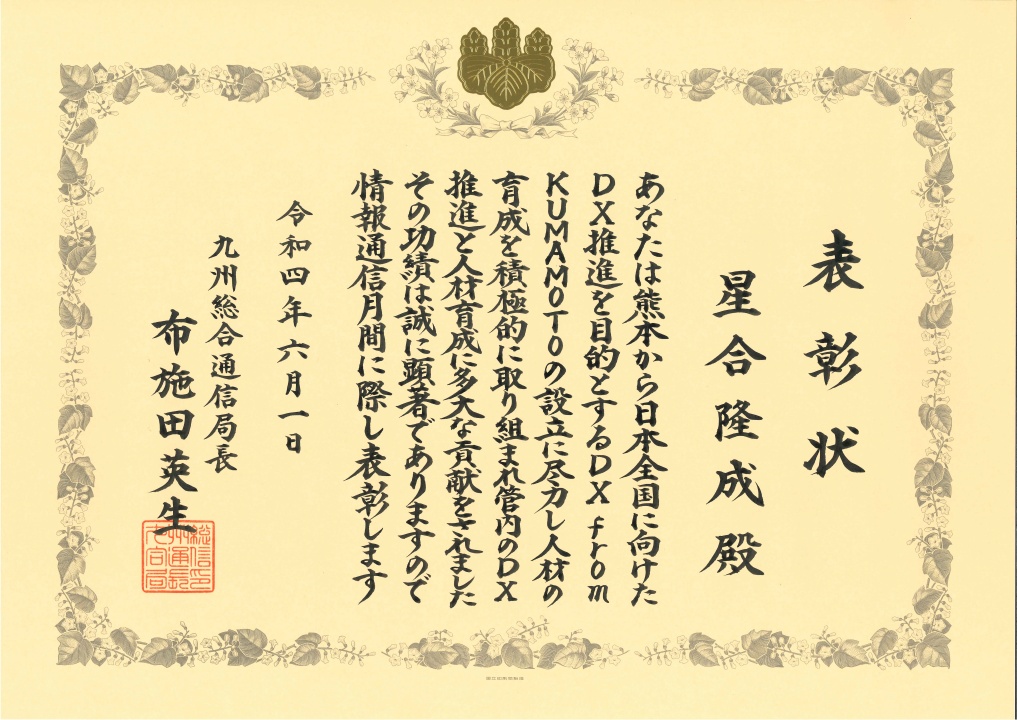 表彰状
星合隆成殿
あなたは熊本から日本全国に向けた
DX推進を目的とするDX from
KUMAMOTOの設立に尽力し人材の
育成を積極的に取り組まれ管内のDX
推進と人材育成に多大な貢献をされました
その功績は誠に顕著でありますので
情報通信月間に際し表彰します
令和四年六月一日
九州総合通信局長
布施田英生